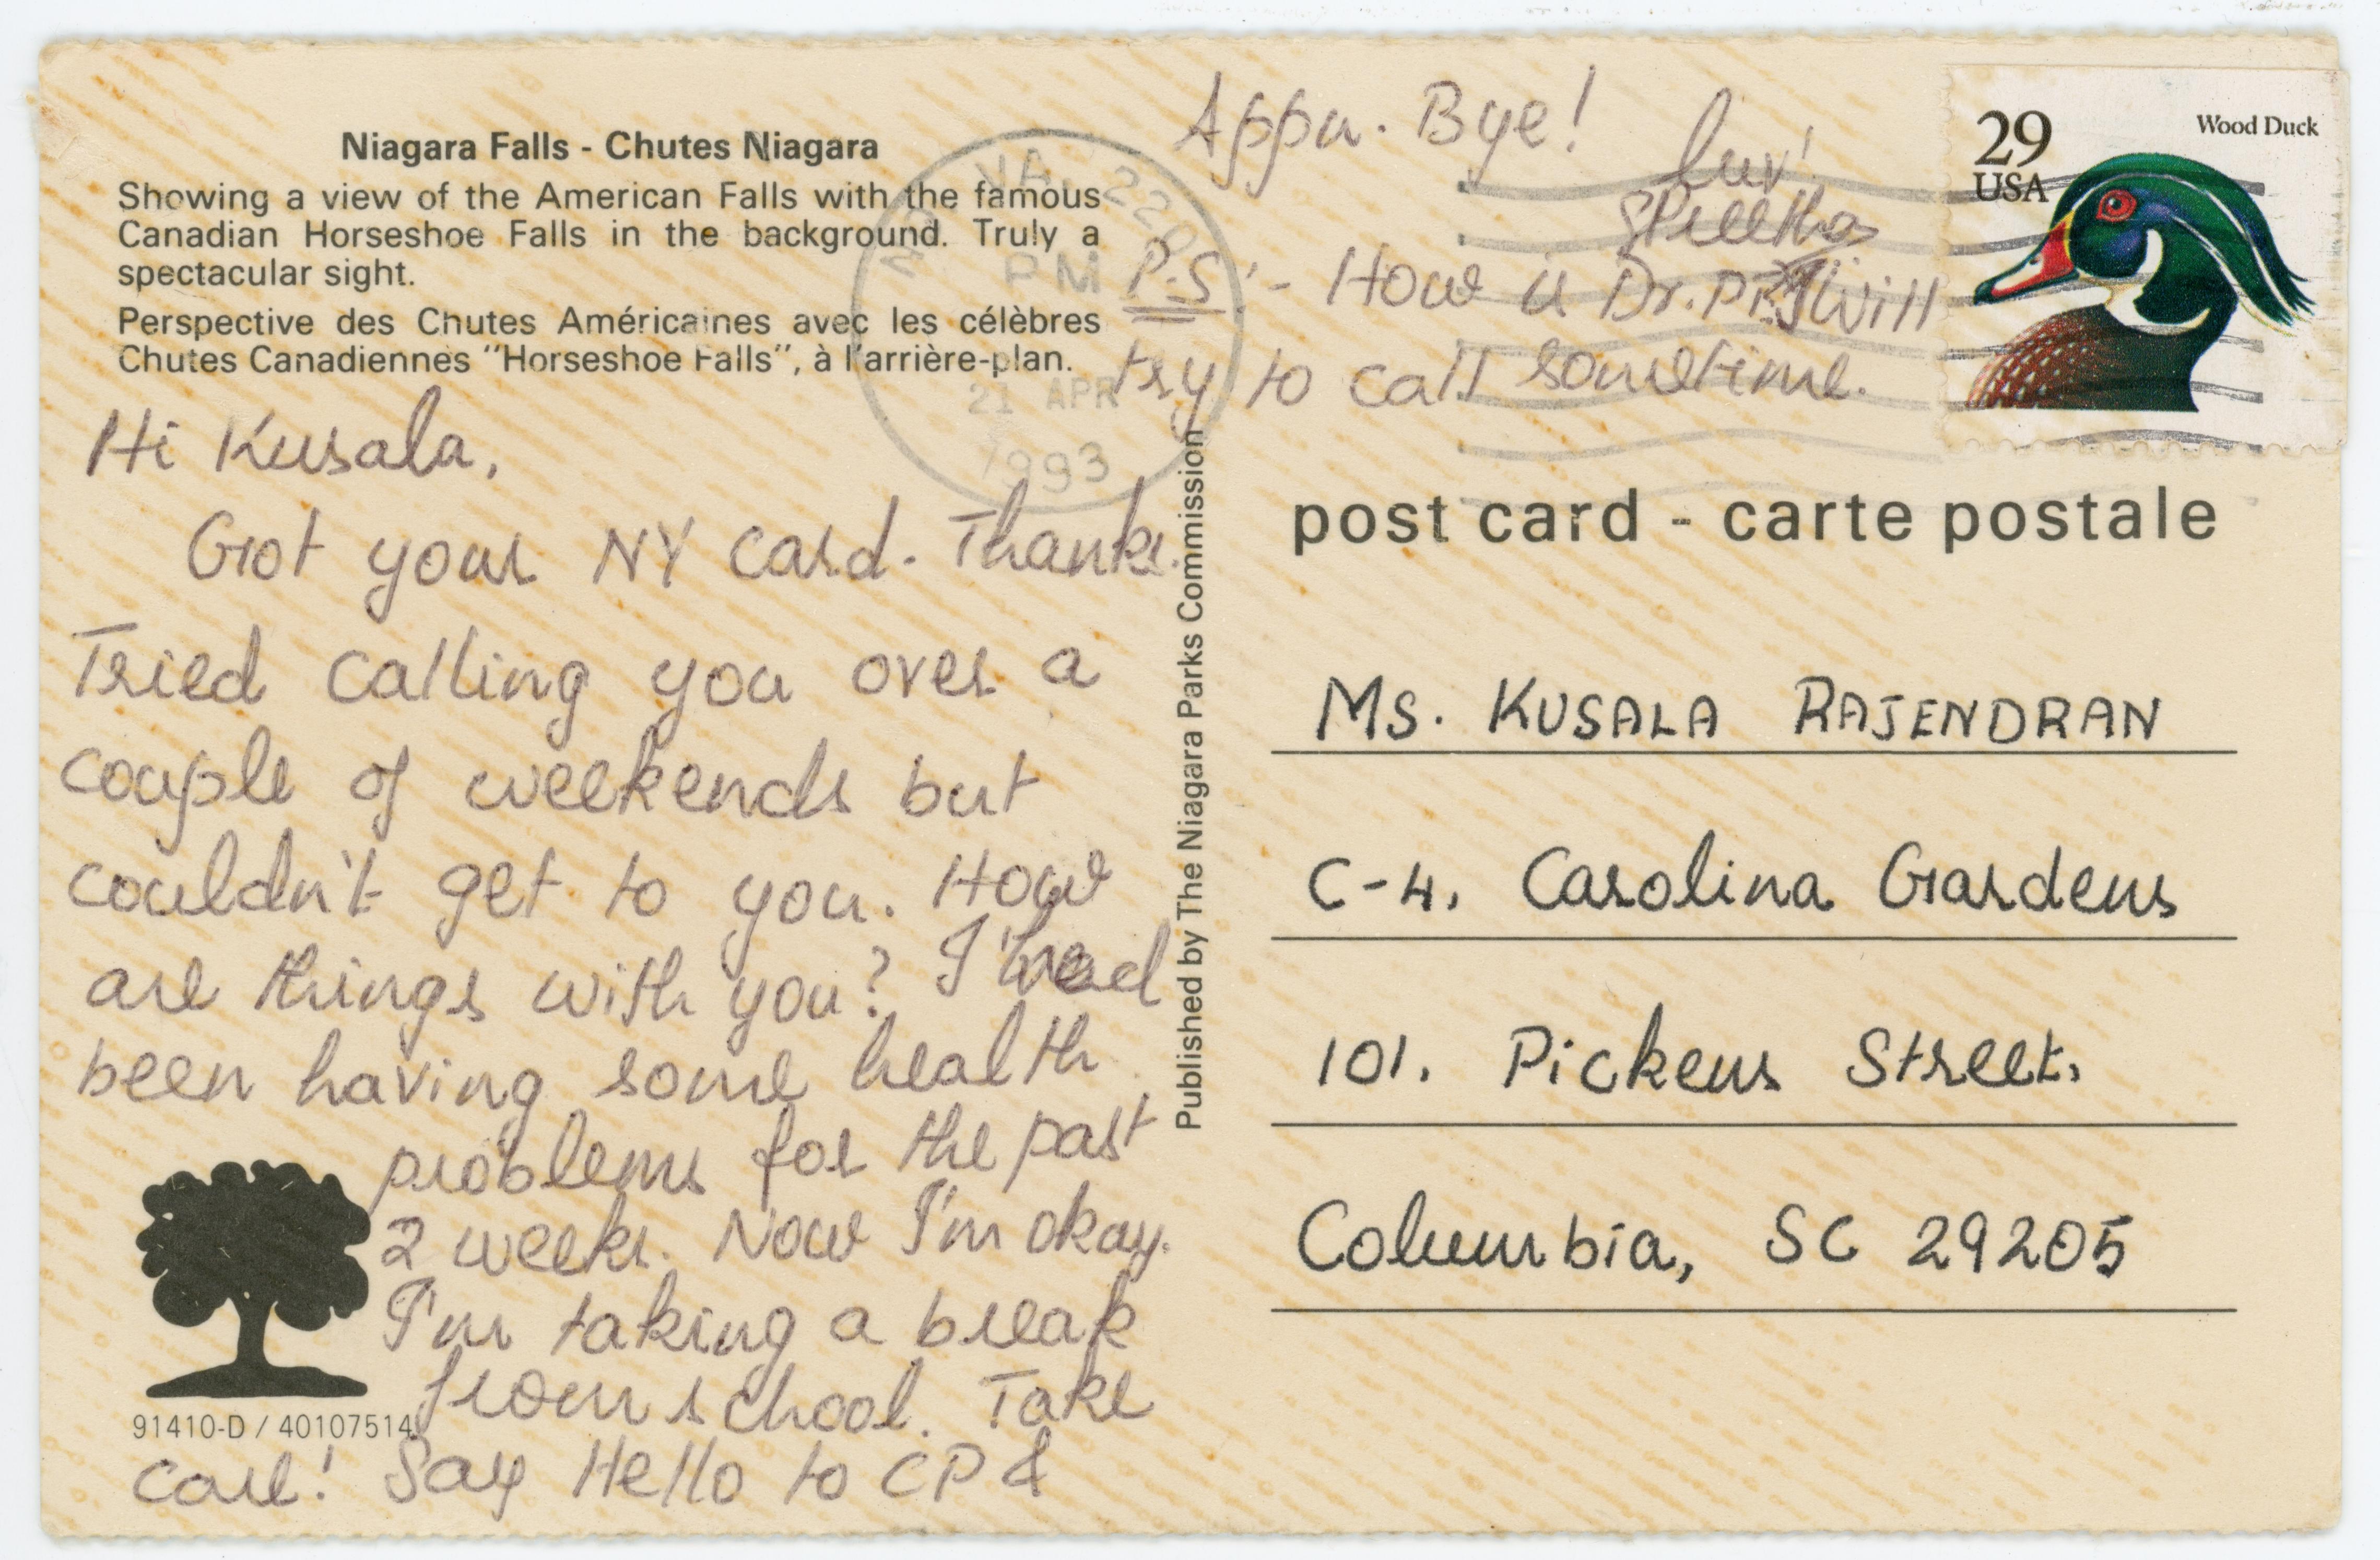 Niagara Falls - Chutes Niagara
Showing a view of the American Falls with the famous
Canadian Horseshoe Falls in the background. Truly a
spectacular sight.
Perspective des Chutes Américaines avec les célèbres
Chutes Canadiennes "Horseshoe Falls", à l'arrière-plan.
Hi Kusala,
Got your NY card. Thanks.
Tried calling you over a
couple of weekends but
couldn't get to you. How
are things with you? I had
been having some health
problems for the past
2 weeks. Now I'm okay.
I'm taking a break
from school. Take
care! Say Hello to CP &
Appu. Bye!
luv'
P.S:- How is Dr. Will
try to call sometime.
91410-D / 40107514
Published by The Niagara Parks Commission
VA 220
PM
21 APR
1993
29
USA
Wood Duck
post card - carte postale
Ms. KUSALA RAJENDRAN
C-4, Carolina Gardens
101, Pickens Street,
Columbia, SC 29205